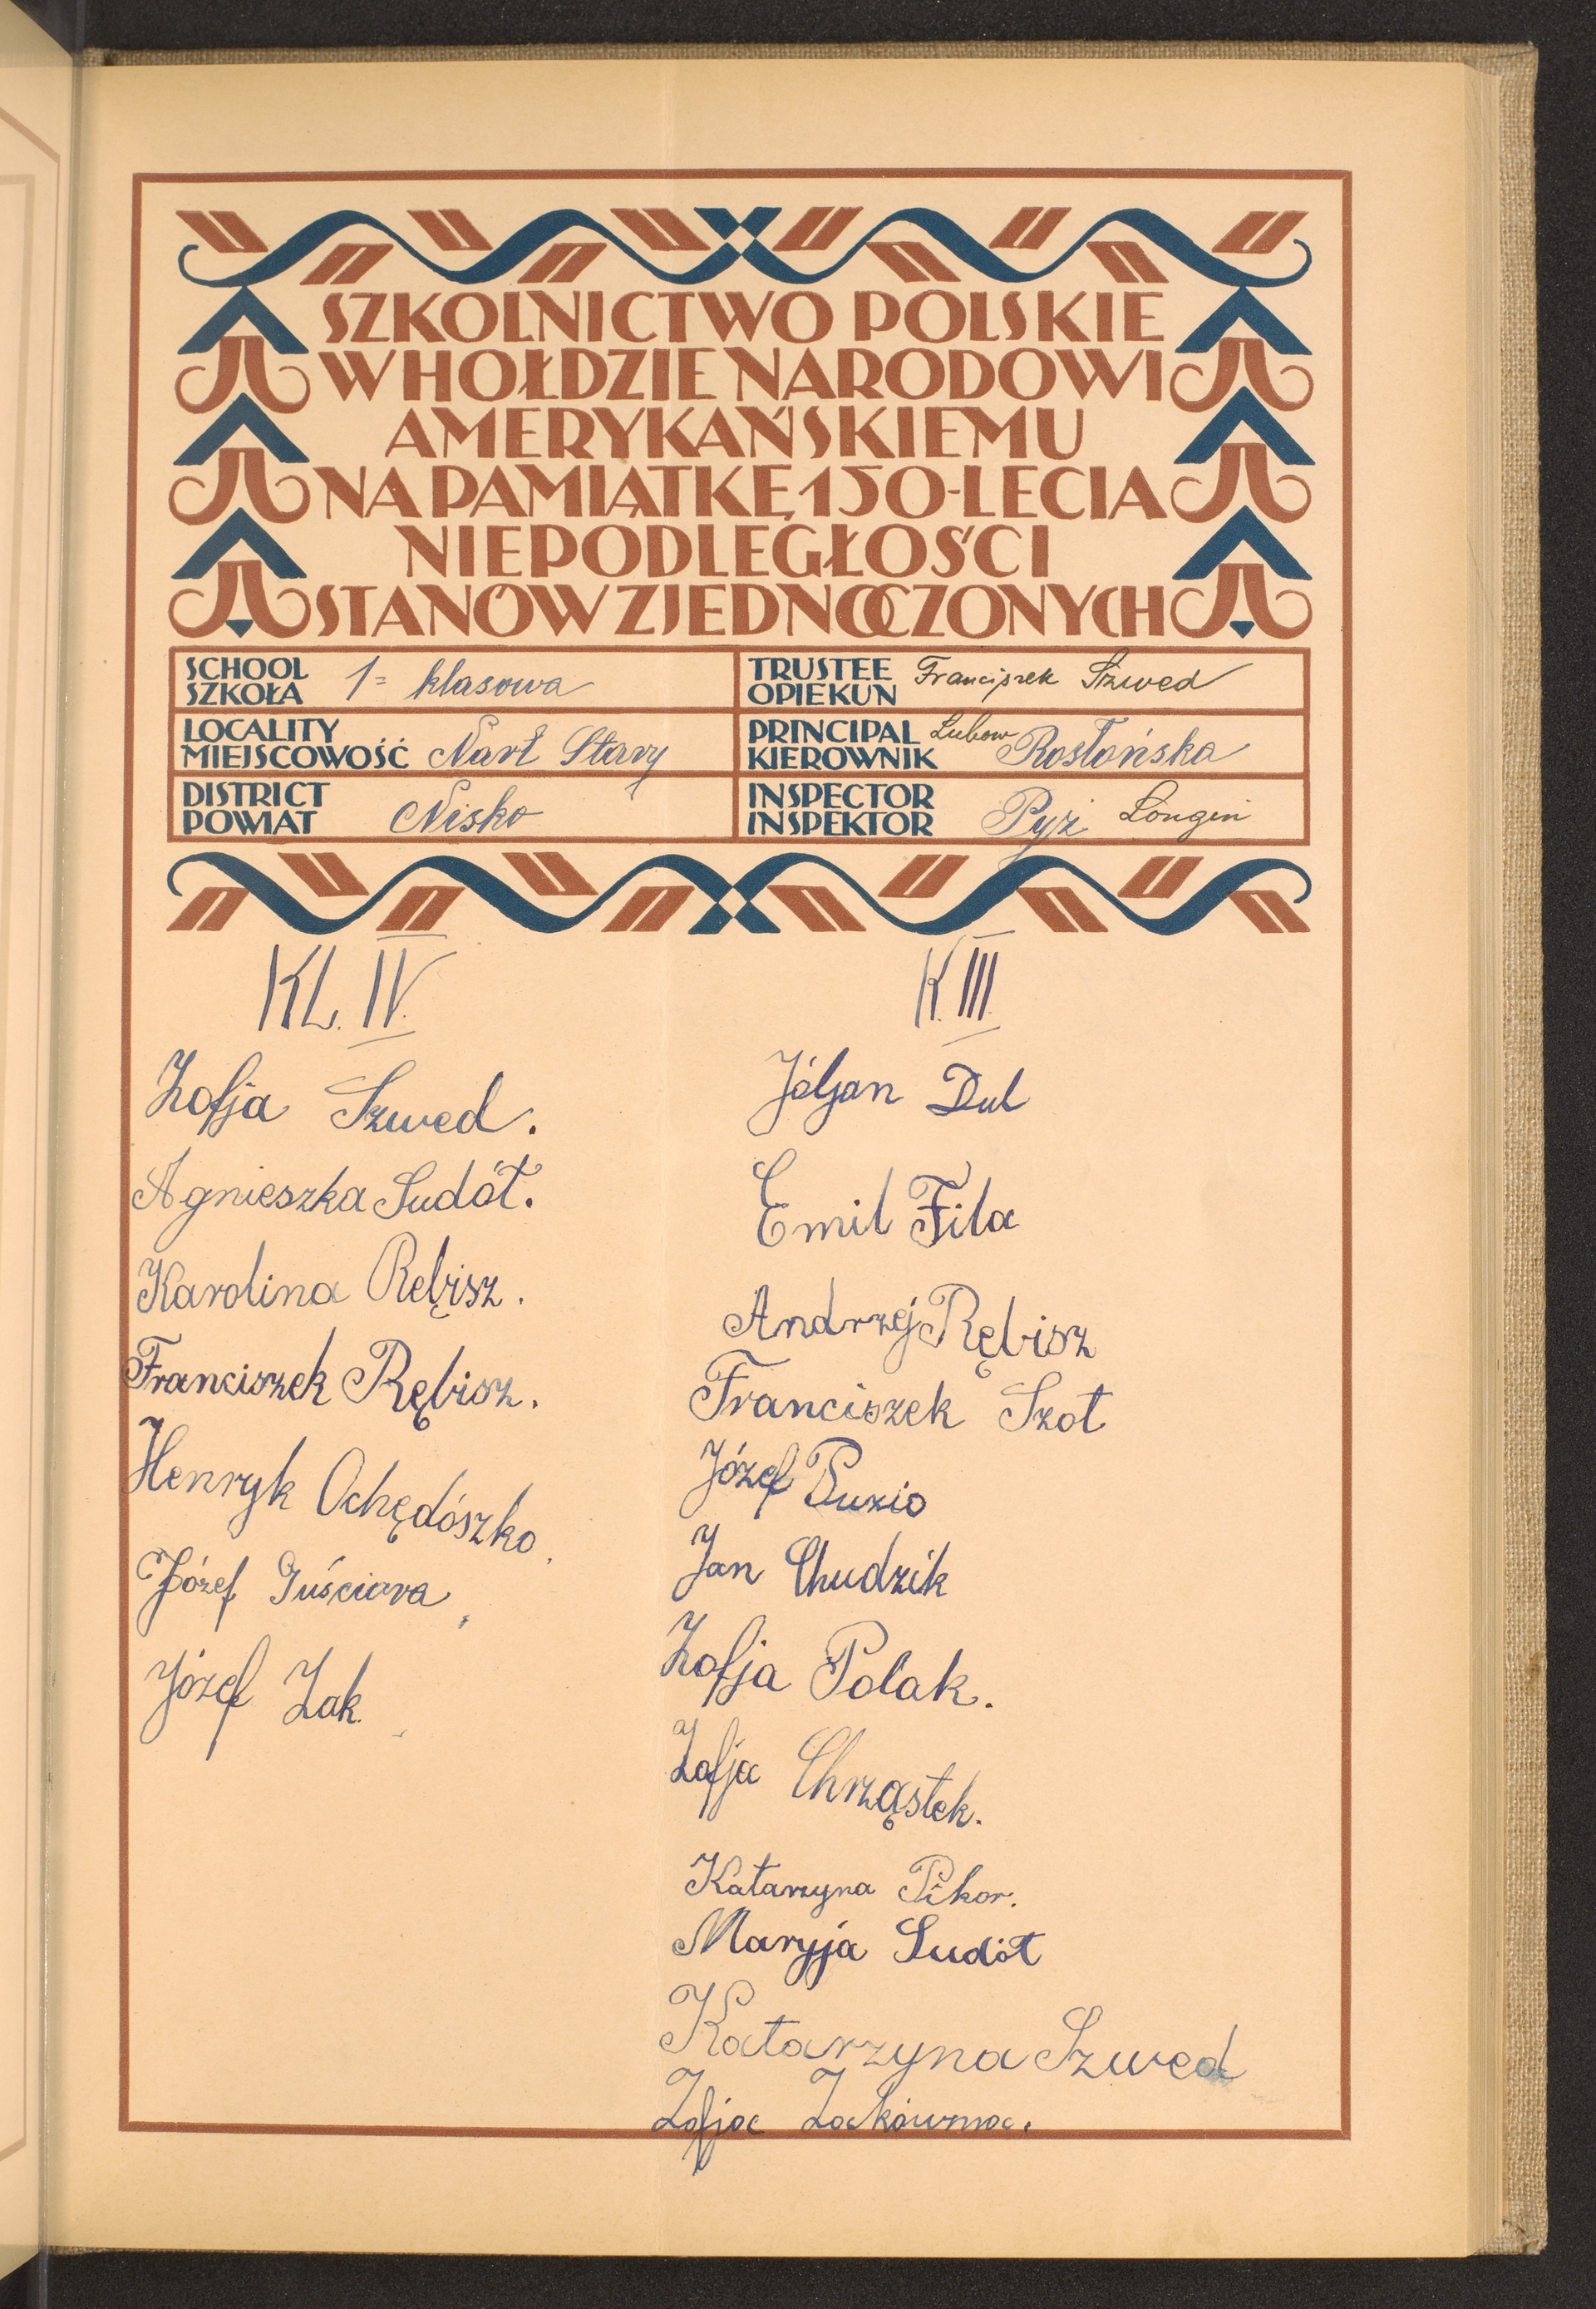 SZKOLNICTWO POLSKIE
W HOŁDZIE NARODOWI
AMERYKAŃSKIEMU
NA PAMIĄTKĘ 150-LECIA
NIEPODLEGŁOŚCI
STANÓW ZJEDNOCZONYCH
SCHOOL
SZKOŁA 1= klasowa
TRUSTEE
OPIEKUN Franciszek Szwed
LOCALITY
MIEJSCOWOŚĆ Nart Stary
PRINCIPAL
KIEROWNIK Lubow Rosłońska
DISTRICT
POWIAT Nisko
INSPECTOR
INSPEKTOR Pyż Longin
KL. IV.
Zofja Szwed.
Agnieszka Sudół.
Karolina Rębisz.
Franciszek Rębisz.
Henryk Ochędószko.
Józef Guściora,
Józef Żak.
K. III.
Dul
Emil Fila
Andrzej Rębisz
Franciszek Szot
Józef Puzio
Jan Chudzik
Zofja Polak.
Zofja Chrząstek.
Katarzyna Pikor.
Maryja Sudół
Katarzyna Szwed
Zofja Żakówna.